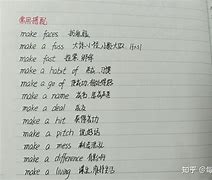 常用搭配
make faces 扮鬼脸
make a fuss 大惊小怪,小题大做
make fast 拴牢,绑牢
make a habit of 养成…习惯
make a go of 使成功,
make a name 成名,
make a deal 成交
make a hit 获得成功
make a pitch
make a mess
make a difference 有影响
make a living 谋生,维持生活
知乎 @